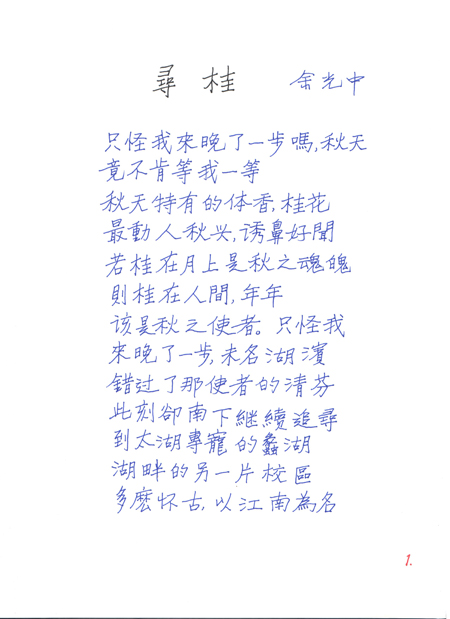 尋桂 余光中
只怪我來晚了一步嗎,秋天
竟不肯等我一等
秋天特有的体香,桂花
最動人秋兴,诱鼻好聞
若桂在月上是秋之魂魄
則桂在人間,年年
该是秋之使者。只怪我
來晚了一步,未名湖濱
錯过了那使者的清芬
此刻卻南下継續追尋
到太湖專寵的蠡湖
湖畔的另一片校區
多麽怀古,以江南為名
1.